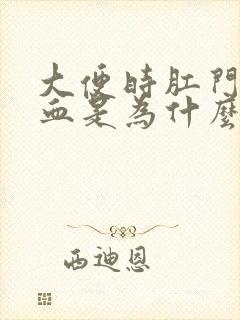 大便時肛門
血是為什麼
西迪恩